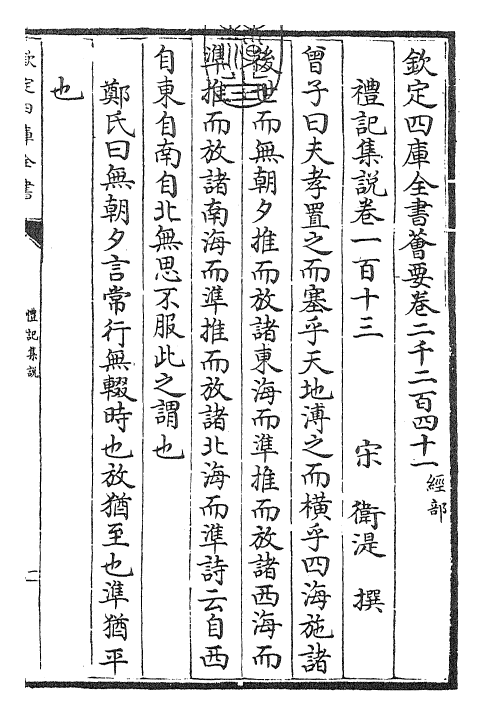 欽定四庫全書薈要卷二千二百四十一經部
禮記集説卷一百十三 宋 衛湜 撰
曾子曰夫孝置之而塞乎天地溥之而橫乎四海施諸
後世而無朝夕推而放諸東海而準推而放諸西海而
準推而放諸南海而準推而放諸北海而準詩云自西
自東自南自北無思不服此之謂也
鄭氏曰無朝夕言常行無輟時也放猶至也準猶平
也
欽定四庫全書
禮記集説